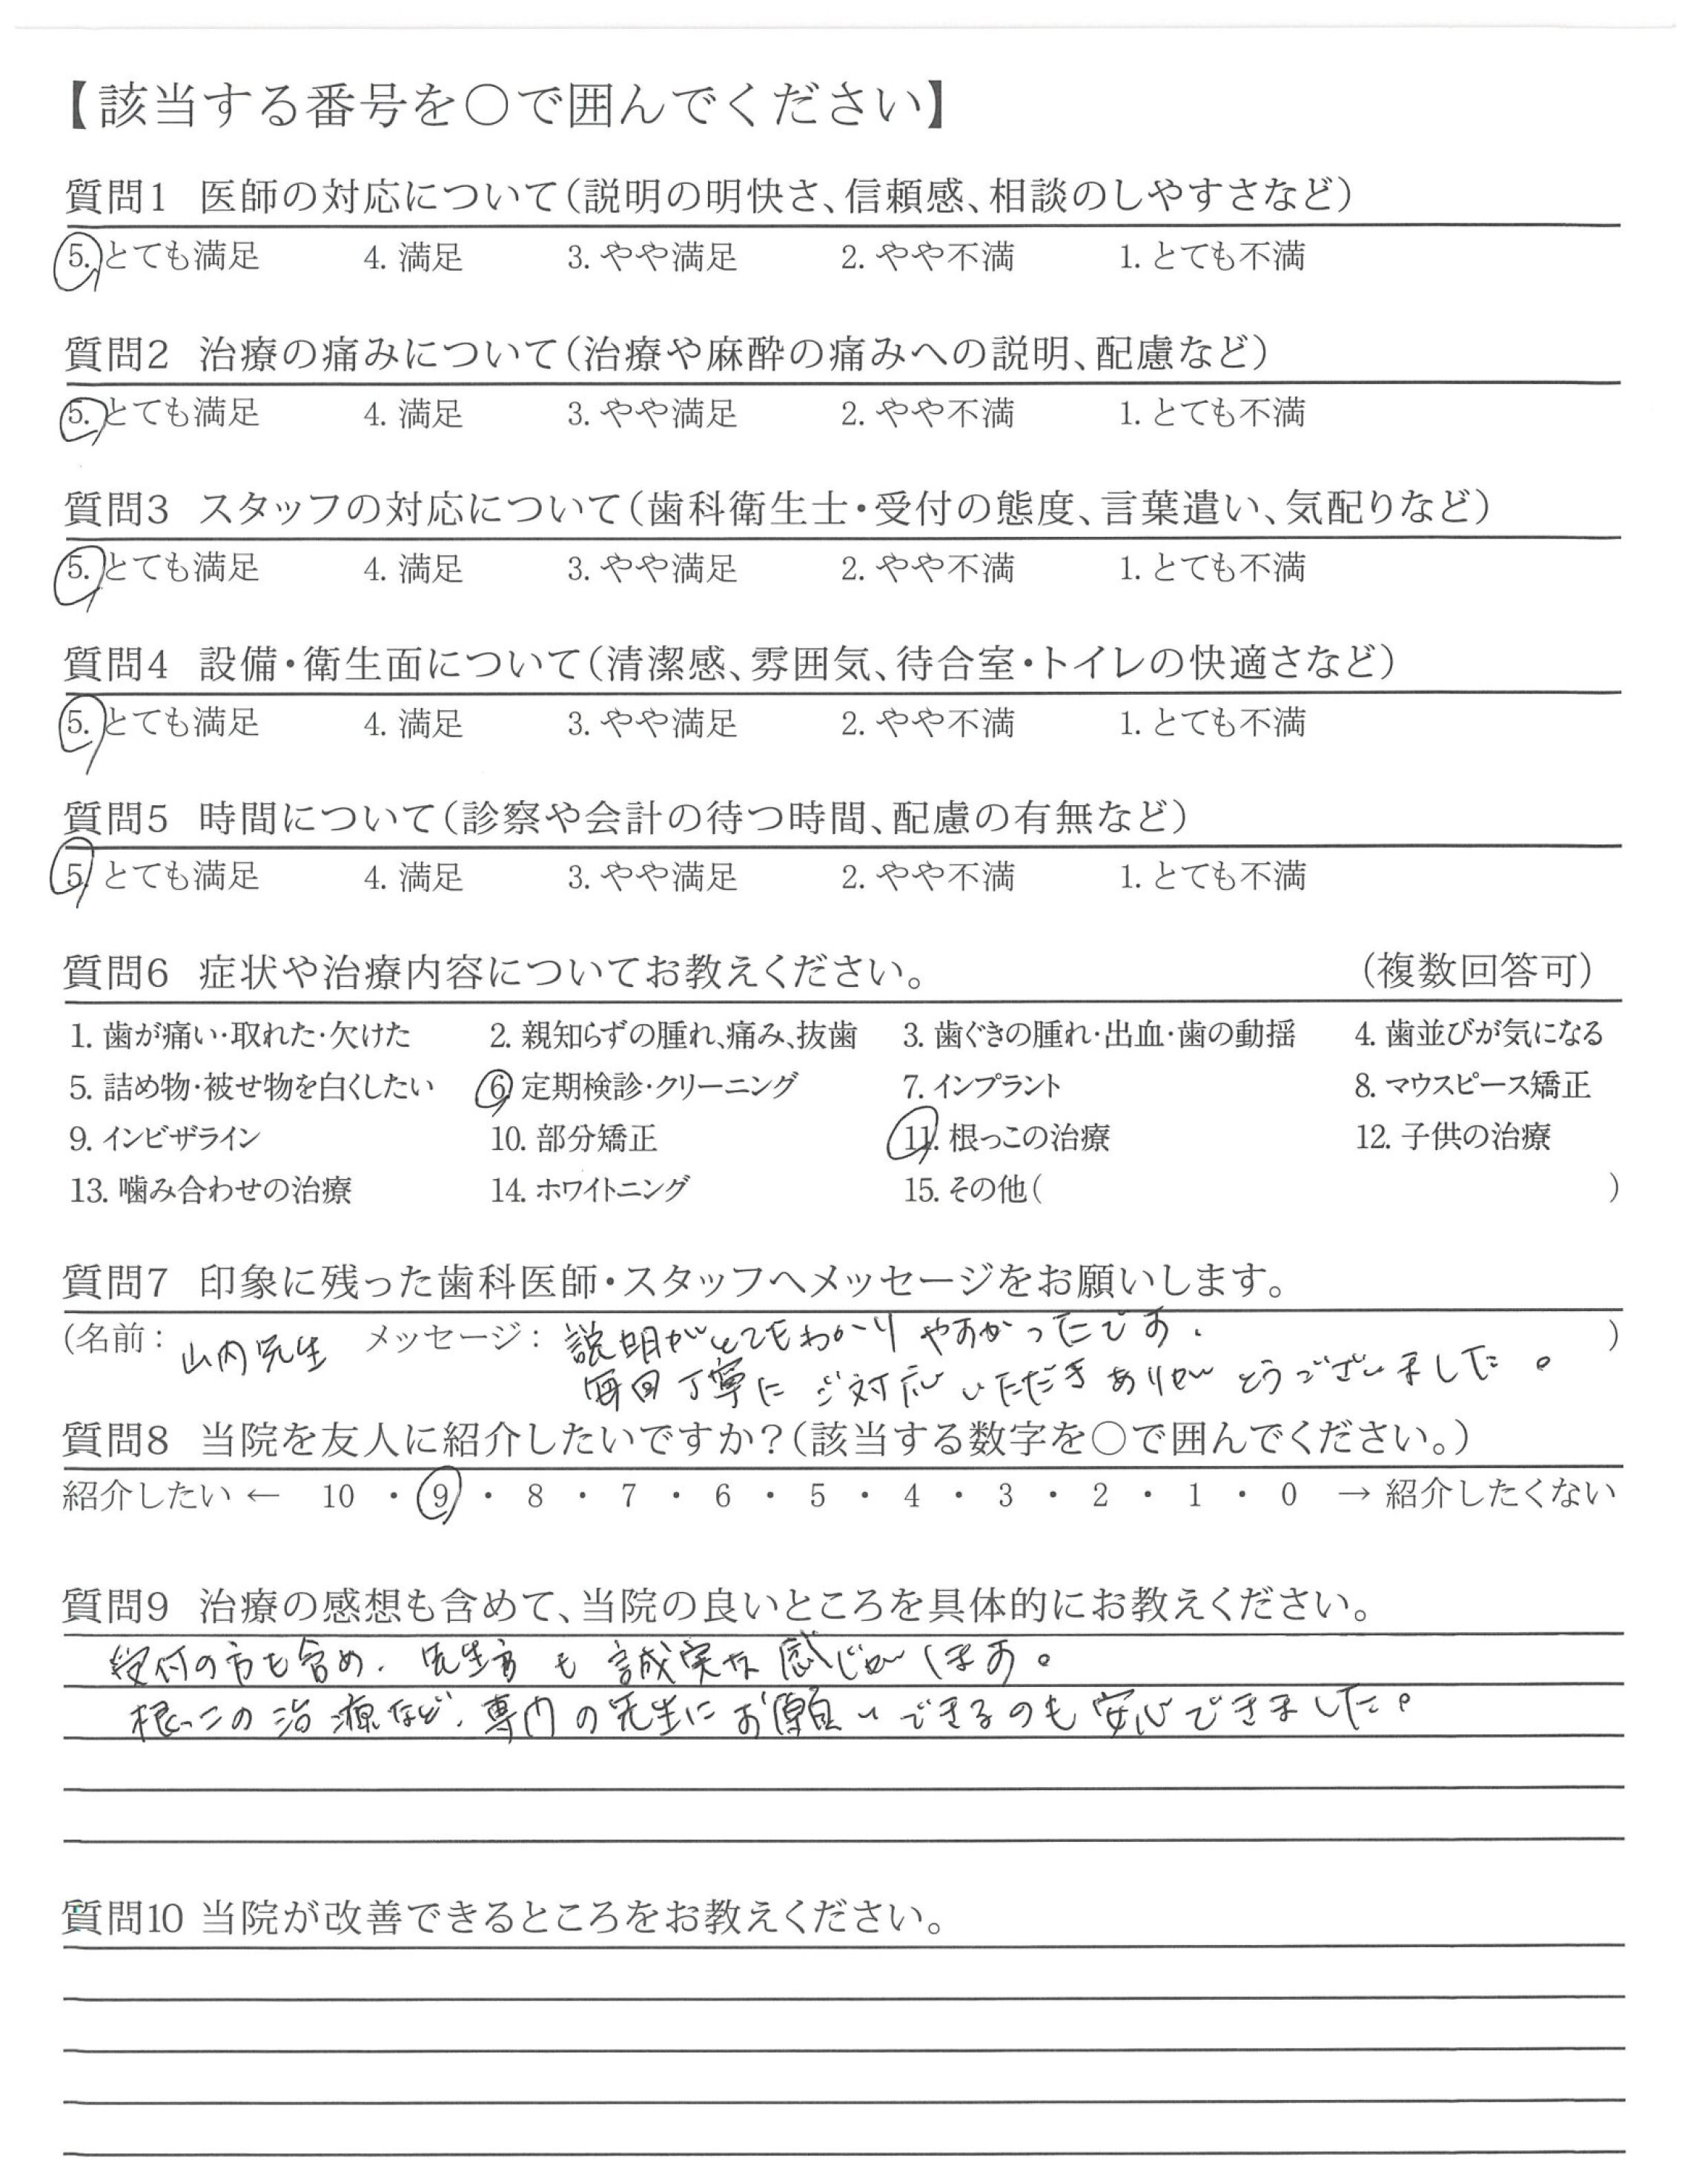 【該当する番号を〇で囲んでください】
質問1 医師の対応について(説明の明快さ、信頼感、相談のしやすさなど)
5. とても満足 4. 満足 3. やや満足 2. やや不満 1. とても不満
質問2 治療の痛みについて(治療や麻酔の痛みへの説明、配慮など)
5. とても満足 4. 満足 3. やや満足 2. やや不満 1. とても不満
質問3 スタッフの対応について(歯科衛生士・受付の態度、言葉遣い、気配りなど)
5. とても満足 4. 満足 3. やや満足 2. やや不満 1. とても不満
質問4 設備・衛生面について(清潔感、雰囲気、待合室・トイレの快適さなど)
5. とても満足 4. 満足 3. やや満足 2. やや不満 1. とても不満
質問5 時間について(診察や会計の待つ時間、配慮の有無など)
5. とても満足 4. 満足 3. やや満足 2. やや不満 1. とても不満
質問6 症状や治療内容についてお教えください。 (複数回答可)
1. 歯が痛い・取れた・欠けた 2. 親知らずの腫れ、痛み、抜歯 3. 歯ぐきの腫れ・出血・歯の動揺 4. 歯並びが気になる
5. 詰め物・被せ物を白くしたい 6. 定期検診・クリーニング 7. インプラント 8. マウスピース矯正
9. インビザライン 10. 部分矯正 11. 根っこの治療 12. 子供の治療
13. 噛み合わせの治療 14. ホワイトニング 15. その他( )
質問7 印象に残った歯科医師・スタッフへメッセージをお願いします。
(名前: 山内先生 メッセージ: 説明がとてもわかりやすかったです。 )
毎回丁寧にご対応いただきありがとうございました。
質問8 当院を友人に紹介したいですか?(該当する数字を〇で囲んでください。)
紹介したい ← 10 ・ 9 ・ 8 ・ 7 ・ 6 ・ 5 ・ 4 ・ 3 ・ 2 ・ 1 ・ 0 → 紹介したくない
質問9 治療の感想も含めて、当院の良いところを具体的にお教えください。
受付の方も含め、先生方も誠実な感じがします。
根っこの治療など、専門の先生にお願いできるのも安心できました。
質問10 当院が改善できるところをお教えください。